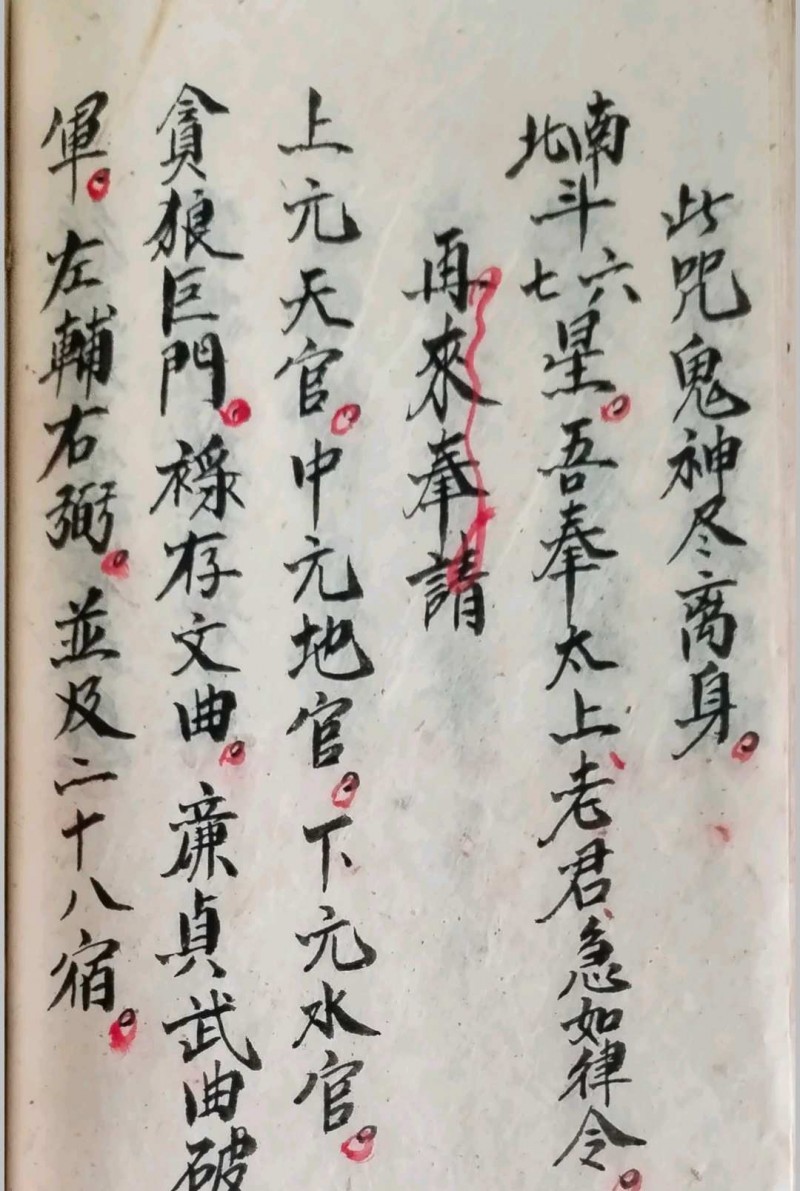 此咒鬼神尽离身。
南北斗六七星。吾奉太上老君急如律令。
再來奉請
上元天官。中元地官。下元水官。
貪狼巨門。祿存文曲。廉貞武曲破
軍。左輔右弼。並及二十八宿。